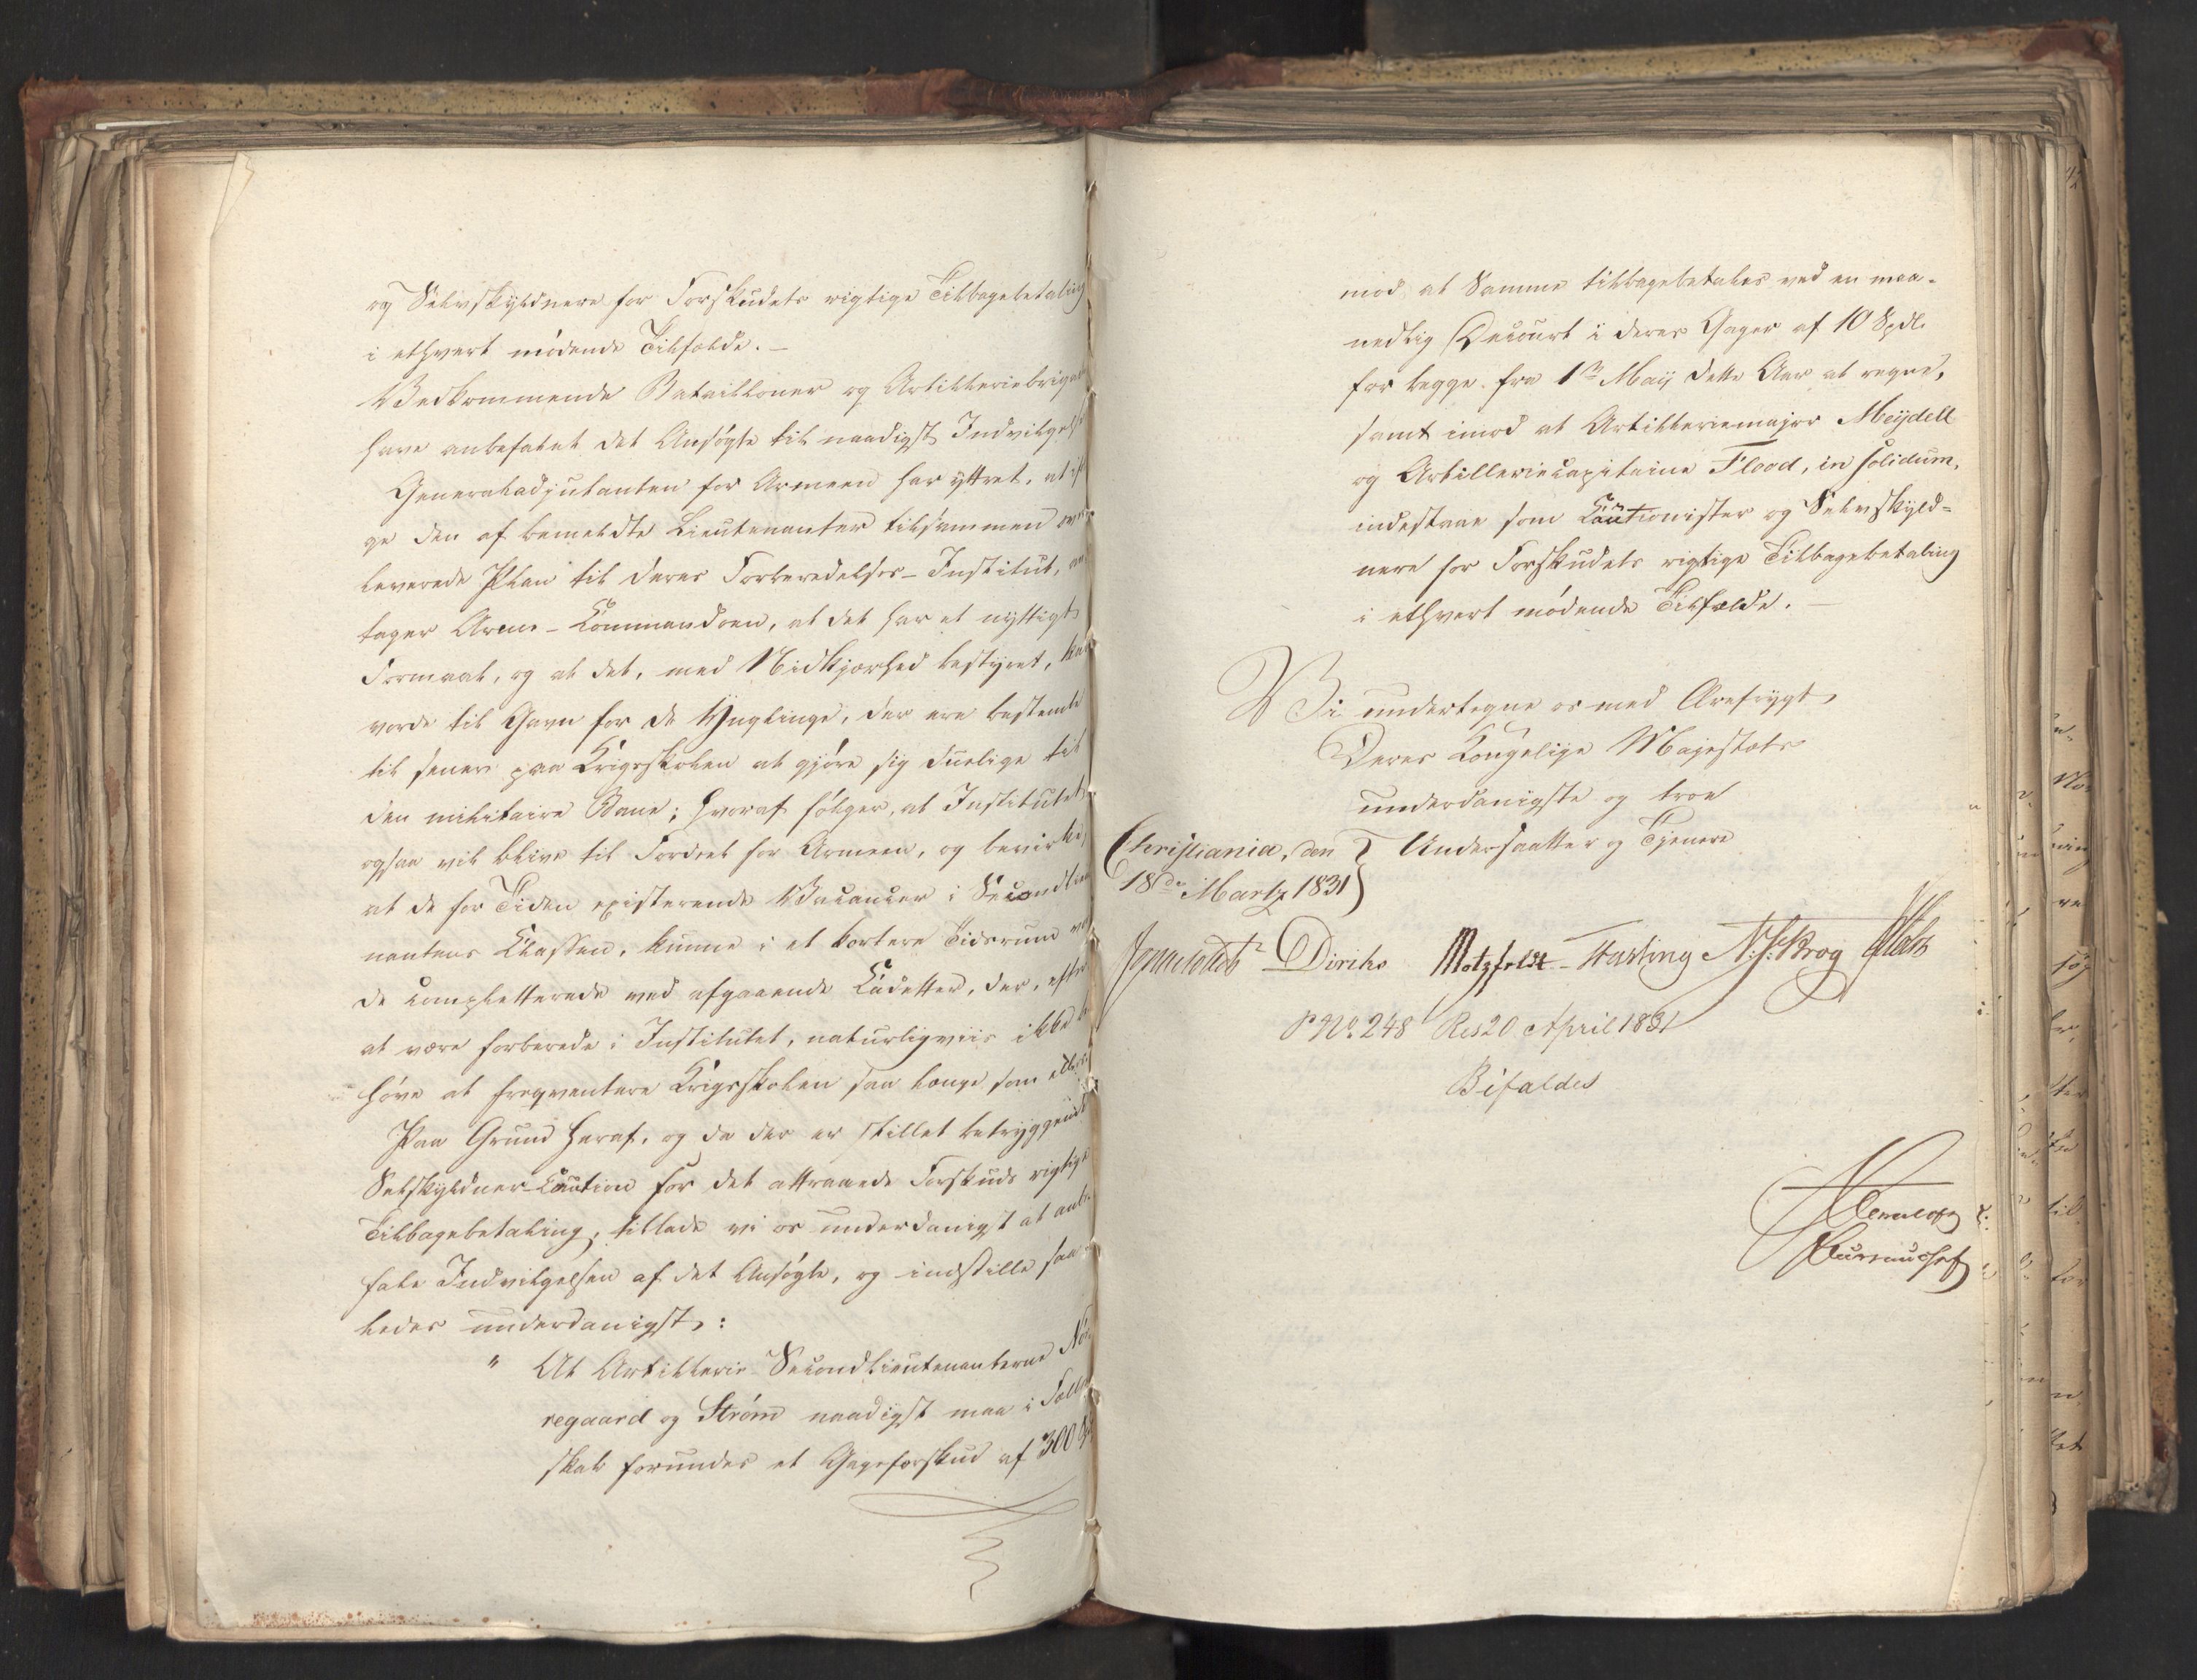 og Selvskyldnere for Forskudets rigtige Tilbagebetaling
i ethvert mødende Tilfælde. –
Vedkommende Batailloner og Artilleriebrigade
have anbefalet det Ansøgte til naadigst Indvilgelse
Generaladjutanten for Armeen har yttret, at
den af bemeldte Lieutenanter tilsammen
leverede Plan til deres Forberedelses-Institut,
tager Armee-Commandoen, at det har et nyttigt
Formaal, og at det, med Nidkjærhed bestyret, kan
vorde til Gavn for de Ynglinge, der ere bestemte
til senere paa Krigsskolen at gjøre sig duelige til
den militaire Bane; hvoraf følger, at Institutet
ogsaa vil blive til Fordeel for Armeen, og bevirke,
at de for Tiden existerende Vacancer i Secondlieu
nanternes Classen, kunne i et kortere Tidsrum
de completterede med afgaaende Cadetter, der, efter
at være forberede i Institutet, naturligviis ikke be
høve at freqventere Krigsskolen saa længe som ellers.
Paa Grund heraf, og da der er stillet betryggende
Selskyldner-Caution for det attraaede Forskuds rigtige
Tilbagebetaling, tillade vi os underdanigst at anbe
fale Indvilgelsen af det Ansøgte, og indstille saa
ledes underdanigst:
" At Artillerie Secondlieutenanterne Nør
regaard og Strøm naadigst maa i Fælles
skab forundes et Gageforskud af 300 Spd
mod at Samme tilbagebetales ved en maa-
nedlig Decourt i deres Gager af 10 Spdlr
for begge fra 1ste Maij dette Aar at regne,
samt imod at Artilleriemajor Meijdell
og Artilleriecapitaine Flood, in solidum,
indestaae som Cautionister og Selvskyld=
nere for Forskudets rigtige Tilbagebetaling
i ethvert mødende Tilfælde. –
Vi undertegne os med Ærefrygt,
Deres Kongelige Majestæts
underdanigste og troe
Christiania, den } Undersaatter og Tjenere
18de Martz 1831
Jonas Collett Diriks Motzfeldt Fasting N: J: Krog Holst
P No. 248 Res 20 April 1831
Bifaldes
Bureauchef